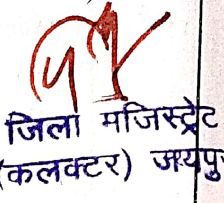 जिला मजिस्ट्रेट
(कलक्टर) जयपु